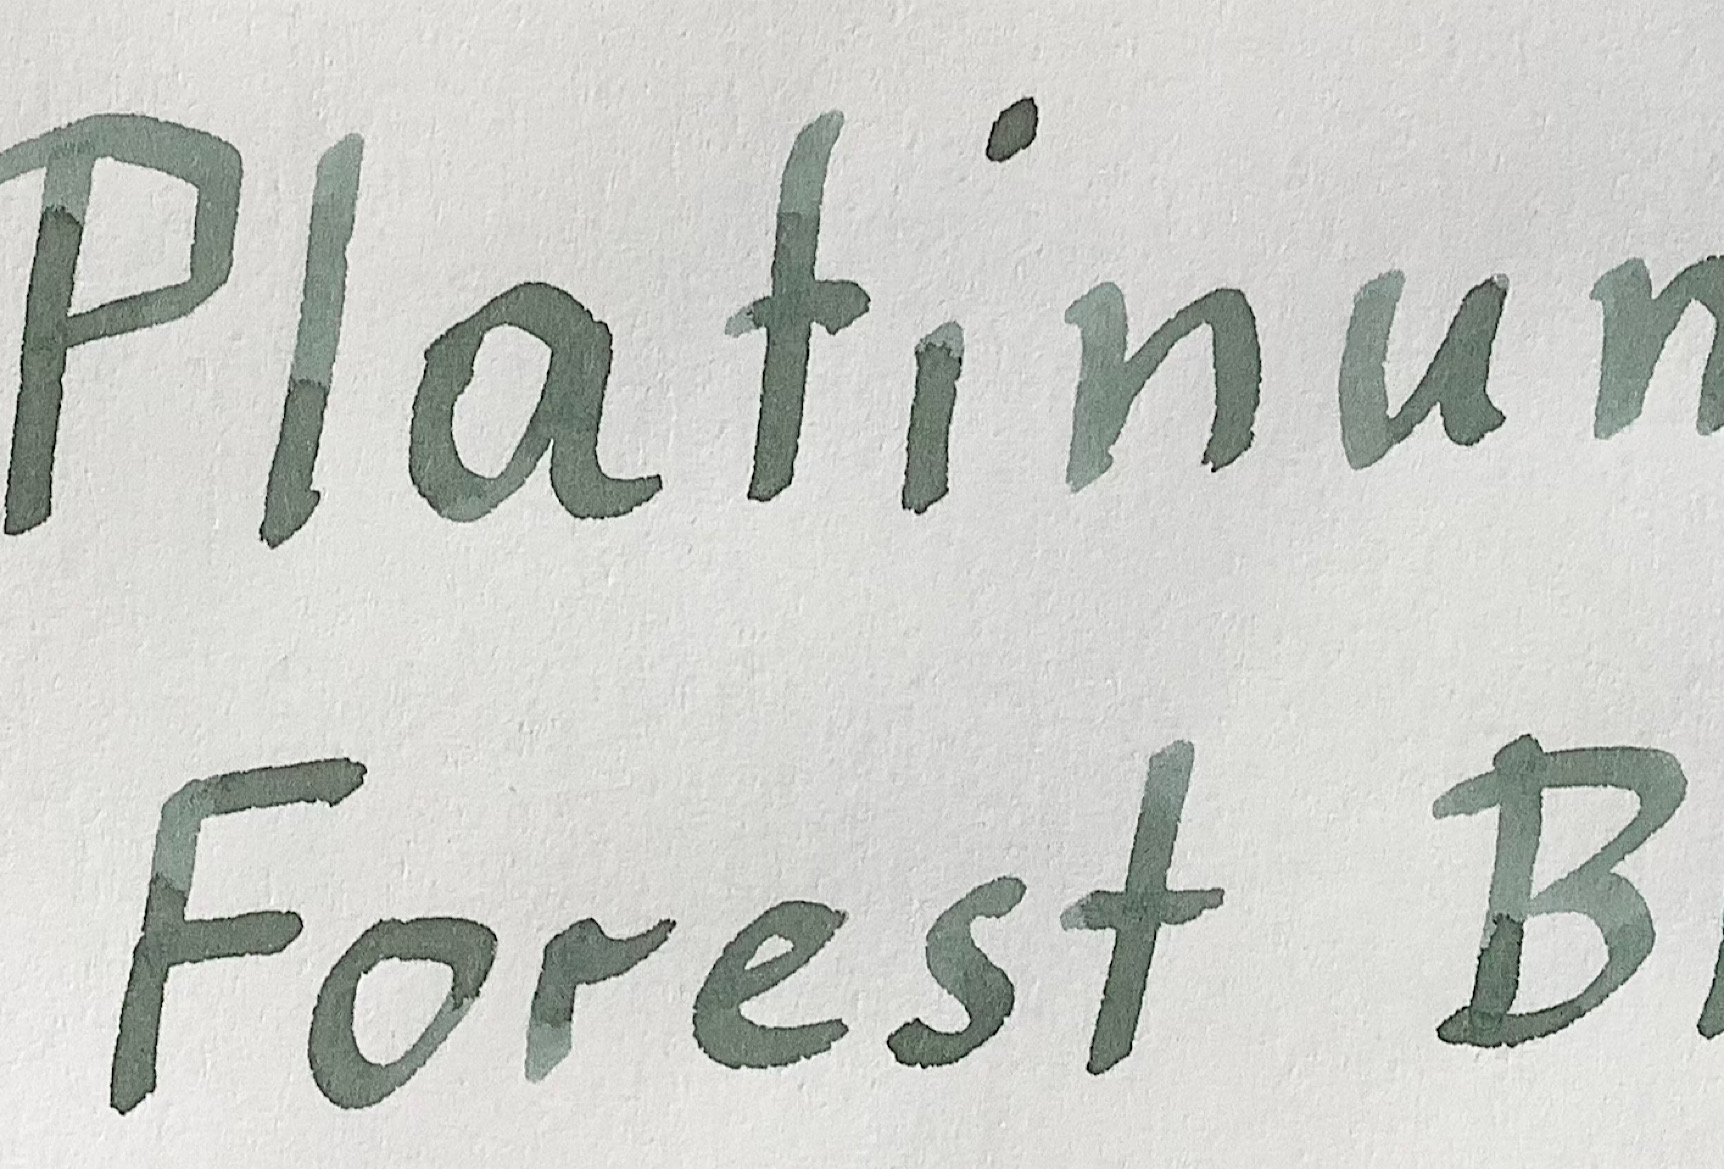 Platinum
Forest B